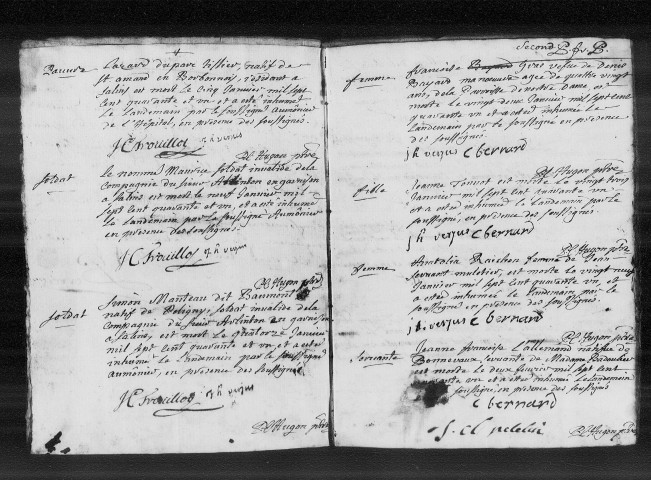 Pauvre
Lazard du parc tissier, natif de
St amand en Borbonnois, residant a
Salins est mort le cinq Janvier mil sept
cent quarante et vn et a esté inhumé
le Landemain par le soussigné aumônier
de l'hôpital, en presence des soussignés.
JC Trouillot jh verjus
PC Hugon ptre
Soldat
le nommé Maurice soldat invalide de la
compagnie du sieur en garnison
a Salins est mort le neuf Janvier mil
sept cent quarante et vn, et a esté inhumé
le landemain par le soussigné Aumônier
en presence des soussignés.
JC Trouillot jh verjus
PC Hugon ptre
Soldat
Simon Manteau dit Beaumont
natif de soldat invalide de la
compagnie du sieur en garnison
a Salins, est mort le quatorze Janvier
mil sept cent quarante et vn, et a esté
inhumé le landemain par le soussigné
aumônier, en presence des soussignés
JC Trouillot jh verjus
PC Hugon ptre
Second
femme
francoise vefve de Denis
Bayard manouvrier agee de quattre vingt
ans, de la Parroisse de nostre Dame, est
morte le vingt deux Janvier mil sept cent
quarante vn et a esté inhumée le
Landemain par le soussigné en presence des
soussignés.
jh verjus C bernard
PC Hugon ptre
fille
Jeanne est morte le vingt trois
Janvier mil sept cent quarante vn
et a esté inhumée le landemain par le
soussigné, en presence des soussignés.
jh verjus C bernard
PC Hugon ptre
femme
Anatolia femme de Jean
muletier, est morte le vingt neuf
Janvier mil sept cent quarante vn, et
a esté inhumée le landemain par le
soussigné en presence des soussignés.
jh verjus C bernard
PC Hugon ptre
Servante
Jeanne francoise Lallemand native de
Bonnevaux servante de Madame
est morte le deux fevrier mil sept cent
quarante vn et a esté inhumée le landemain
soussigné, en presence des soussignés
C bernard
PC Hugon ptre